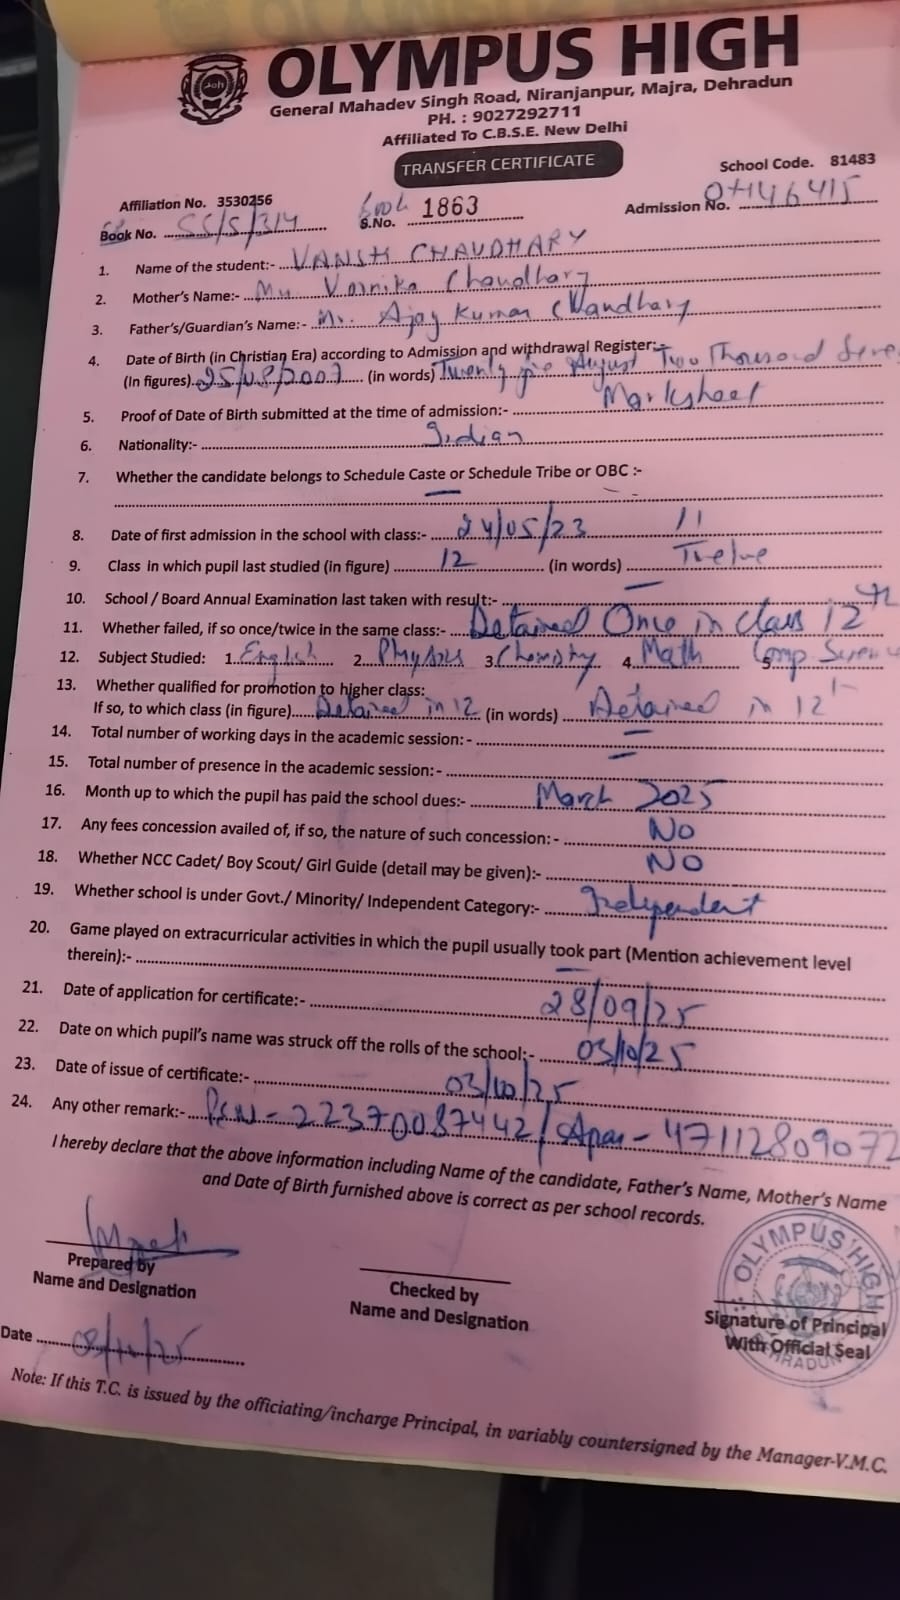 OLYMPUS HIGH
General Mahadev Singh Road, Niranjanpur, Majra, Dehradun
PH. : 9027292711
Affiliated To C.B.S.E. New Delhi
TRANSFER CERTIFICATE
School Code. 81483
Affiliation No. 3530256
Book No. S.No. 1863 Admission No.
1. Name of the student:- VANSH CHAUDHARY
2. Mother's Name:- Chaudhary
3. Father's/Guardian's Name:- Mr. Ajay Kumar Chaudhary
4. Date of Birth (in Christian Era) according to Admission and withdrawal Register:-
(In figures) 25/08/2007 (in words) Twenty five August Two Thousand Seve
5. Proof of Date of Birth submitted at the time of admission:- Marksheet
6. Nationality:- Indian
7. Whether the candidate belongs to Schedule Caste or Schedule Tribe or OBC :-
—
8. Date of first admission in the school with class:- 24/05/23 11
9. Class in which pupil last studied (in figure) 12 (in words) Twelve
10. School / Board Annual Examination last taken with result:- —
11. Whether failed, if so once/twice in the same class:- Detained Once in class 12th
12. Subject Studied: 1. English 2. Physics 3. Chemistry 4. Math 5. Comp
13. Whether qualified for promotion to higher class:
If so, to which class (in figure) Detained in 12 (in words) Detained in 12
14. Total number of working days in the academic session: - —
15. Total number of presence in the academic session:- —
16. Month up to which the pupil has paid the school dues:- March 2025
17. Any fees concession availed of, if so, the nature of such concession: - NO
18. Whether NCC Cadet/ Boy Scout/ Girl Guide (detail may be given):- NO
19. Whether school is under Govt./ Minority/ Independent Category:- Independent
20. Game played on extracurricular activities in which the pupil usually took part (Mention achievement level
therein):- —
21. Date of application for certificate:- 28/09/25
22. Date on which pupil's name was struck off the rolls of the school:- 03/10/25
23. Date of issue of certificate:- 03/10/25
24. Any other remark:- PEN - 22370087442 / Apaar - 47112809072
I hereby declare that the above information including Name of the candidate, Father's Name, Mother's Name
and Date of Birth furnished above is correct as per school records.
OLYMPUS HIGH
Prepared by
Name and Designation
Checked by
Name and Designation
Signature of Principal
With Official Seal
Date
Note: If this T.C. is issued by the officiating/incharge Principal, in variably countersigned by the Manager-V.M.C.